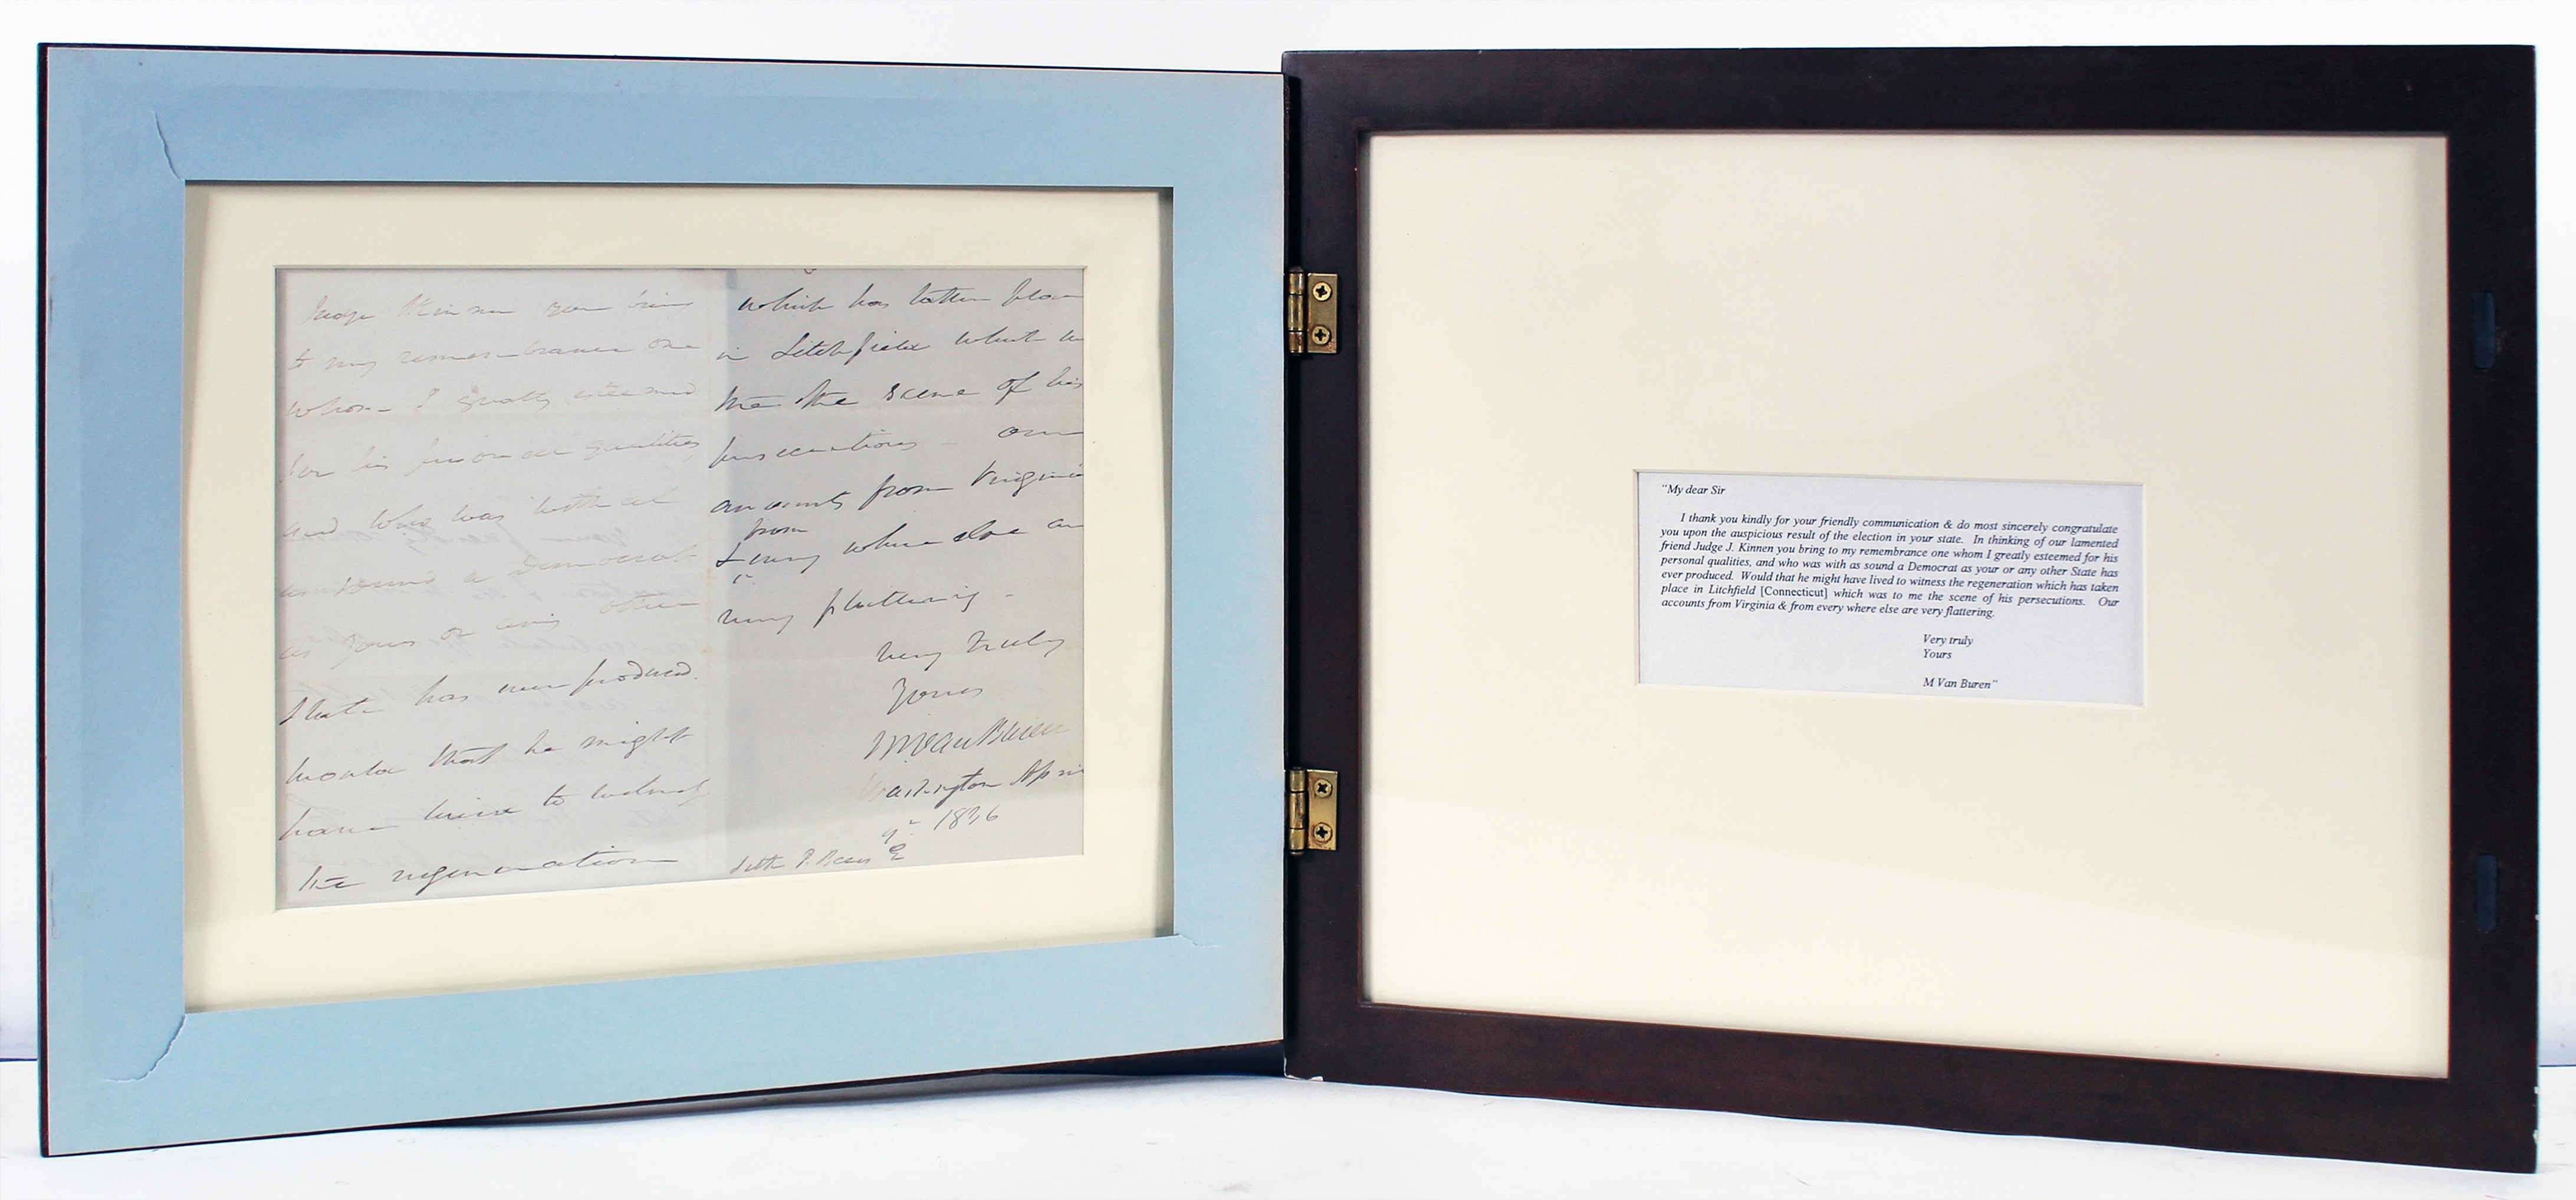 Judge Kinnen you bring
to my remembrance one
whom I greatly esteemed
for his personal qualities
and who was with al
as sound a Democrat
as yours or any other
State has ever produced.
Would that he might
have lived to witness
the regeneration
which has taken place
in Litchfield which w
the scene of his
persecutions - our
accounts from Virginia
from
& every where else are
very flattering -
Very truly
Yours
M Van Buren
Washington April
1836
Seth P.
"My dear Sir
I thank you kindly for your friendly communication & do most sincerely congratulate
you upon the auspicious result of the election in your state. In thinking of our lamented
friend Judge J. Kinnen you bring to my remembrance one whom I greatly esteemed for his
personal qualities, and who was with as sound a Democrat as your or any other State has
ever produced. Would that he might have lived to witness the regeneration which has taken
place in Litchfield [Connecticut] which was to me the scene of his persecutions. Our
accounts from Virginia & from every where else are very flattering.
Very truly
Yours
M Van Buren"